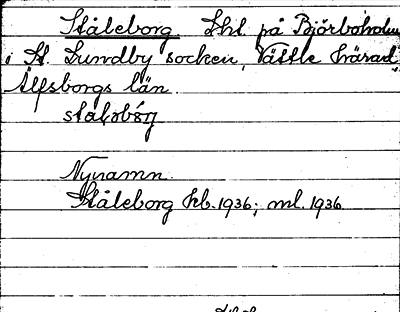 Ståleborg Lht. på Björboholm
i St. Lundby socken, Vättle härad,
Älfsborgs län.
Nynamn.
Ståleborg kb. 1936; ml. 1936